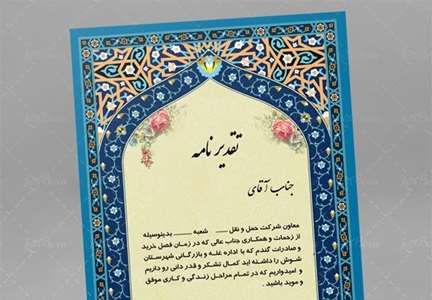 تقدیر نامه
جناب آقای
معاون شرکت حمل و نقل ..... شعبه ........ بدینوسیله
از زحمات و همکاری جناب عالی که در زمان فصل خرید
و صادرات گندم که با اداره غله و بازرگانی شهرستان
شوش را داشته اید کمال تشکر و قدر دانی رو داریم
و امیدواریم که در تمام مراحل زندگی و کاری موفق
و موید باشید .